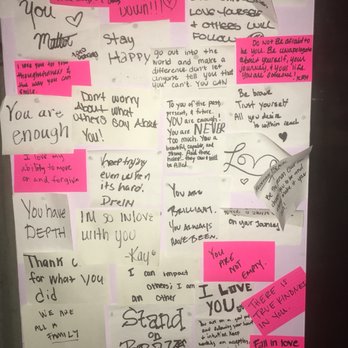 You
Matter
DOWN!!!
Stay
Happy
Love yourself
& others will
Follow
go out into the
world and make
a difference don't let
anyone tell you that
you can't. You CAN
Do not be afraid to
be you. Be unapologetic
about yourself, your
journey, & your life.
You are awesome!
I love you for your
thoughtfulness &
the way you can
smile
You are
enough
Don't worry
about what
others say about
you!
To you of the past,
present, & future
You are enough!
You are NEVER
too much. You are
beautiful, capable, and
strong. And those
Be brave
Trust yourself
All you desire
is within reach
I love my
ability to move
on and forgive
keep trying
even when
its hard.
Love
You have
DEPTH
I'm so in love
with you
-Kay
You are
BRILLIANT.
You always
HAVE BEEN.
on your journey
You
ARE
NOT
EMPTY.
Thank
for what you
did
WE ARE
ALL A
FAMILY
I can impact
others; I am
an other
I LOVE
YOU
THERE IS
TRUE KINDNESS
IN YOU.
Stand
on
Fall in love